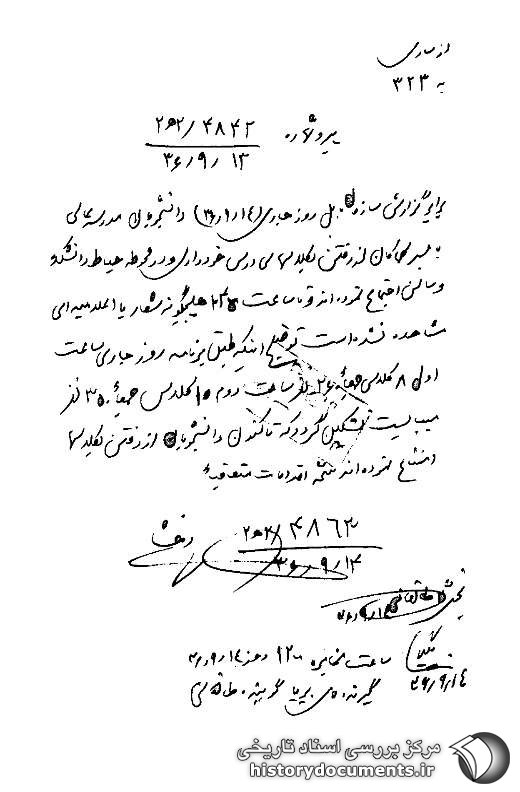 از ساری
به ۳۲۳
پیرو شماره ۴۸۴۲/ ۲ه۲
۳۶/۹/۱۳
برابر گزارش سازمان بابل روز جاری (۳۶/۹/۱۴) دانشجویان مدرسه عالی
کماکان از رفتن بکلاسهای درس خودداری و در محوطه حیاط دانشکده
و سالن اجتماع نموده اند و تا ساعت هیچگونه شعار یا اعلامیه ای
مشاهده نشده است توضیح اینکه طبق برنامه روز جاری ساعت
اول ۸ کلاس جمعاً ۲۶۰ نفر ساعت دوم ۱۰ کلاس جمعاً ۳۵۰ نفر
میبایست تشکیل گردد که تاکنون دانشجویان از رفتن بکلاسها
امتناع نموده اند نتیجه اقدامات متعاقباً
۴۸۶۳/ ۲ه۲
۳۶/۹/۱۴
ساعت مخابره ۱۲۰۰ روز ۳۶/۹/۱۴
۳۶/۹/۱۴
گیرنده گوینده
مرکز بررسی اسناد تاریخی
historydocuments.ir